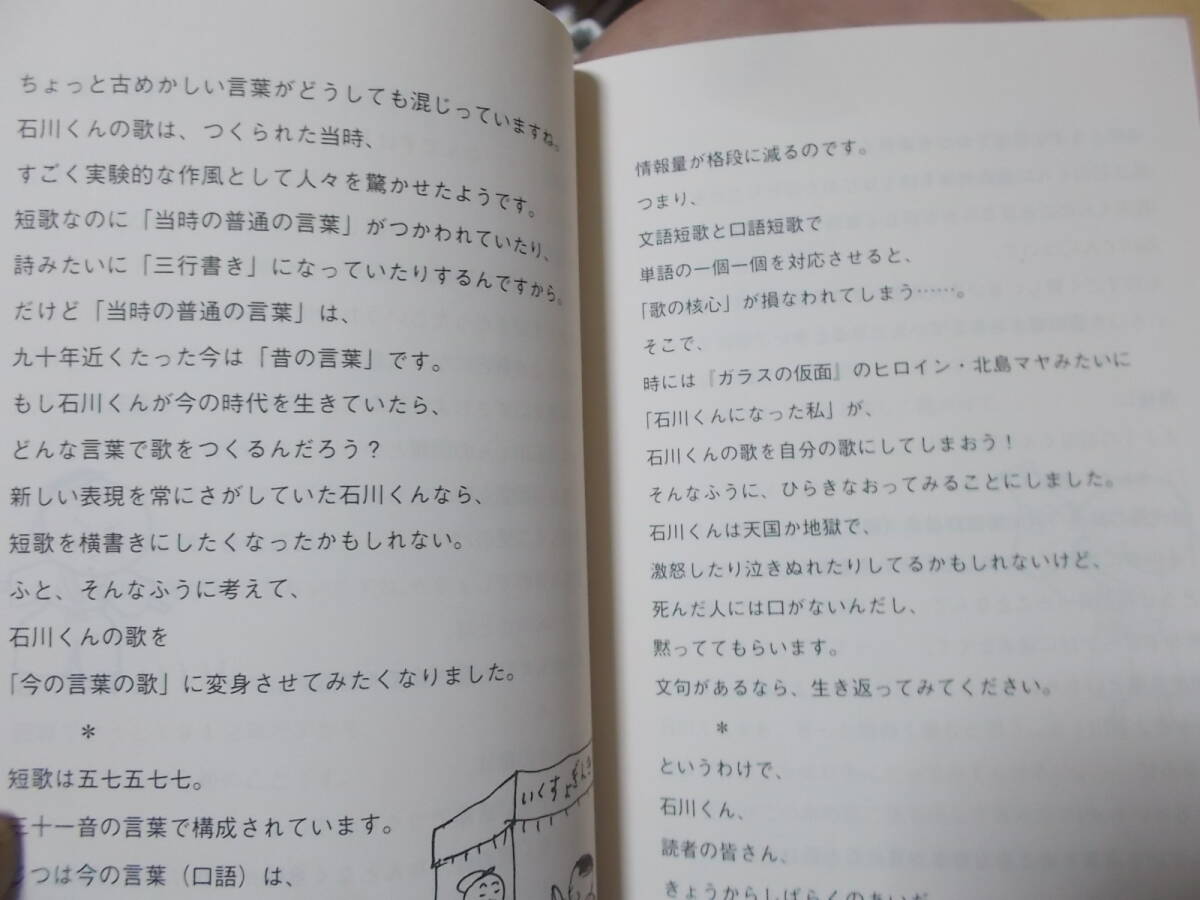 ちょっと古めかしい言葉がどうしても混じっていますね。
石川くんの歌は、つくられた当時、
すごく実験的な作風として人々を驚かせたようです。
短歌なのに「当時の普通の言葉」がつかわれていたり、
詩みたいに「三行書き」になっていたりするんですから。
だけど「当時の普通の言葉」は、
九十年近くたった今は「昔の言葉」です。
もし石川くんが今の時代を生きていたら、
どんな言葉で歌をつくるんだろう？
新しい表現を常にさがしていた石川くんなら、
短歌を横書きにしたくなったかもしれない。
ふと、そんなふうに考えて、
石川くんの歌を
「今の言葉の歌」に変身させてみたくなりました。
＊
短歌は五七五七七。
三十一音の言葉で構成されています。
つは今の言葉（口語）は、
いくすょ
情報量が格段に減るのです。
つまり、
文語短歌と口語短歌で
単語の一個一個を対応させると、
「歌の核心」が損なわれてしまう……。
そこで、
時には『ガラスの仮面』のヒロイン・北島マヤみたいに
「石川くんになった私」が、
石川くんの歌を自分の歌にしてしまおう！
そんなふうに、ひらきなおってみることにしました。
石川くんは天国か地獄で、
激怒したり泣きぬれたりしてるかもしれないけど、
死んだ人には口がないんだし、
黙っててもらいます。
文句があるなら、生き返ってみてください。
＊
というわけで、
石川くん、
読者の皆さん、
きょうからしばらくのあいだ